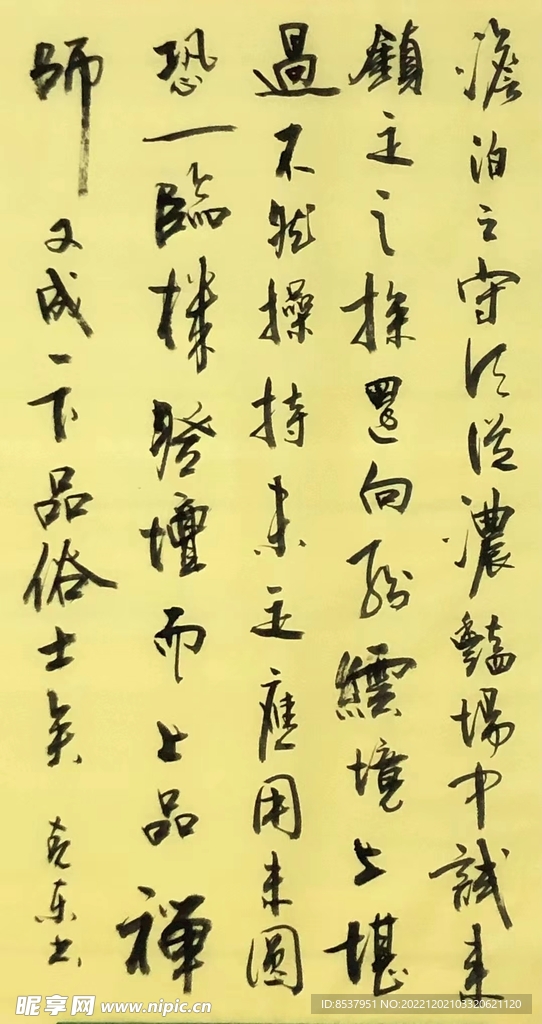 澹泊之守須從濃豔場中試来
鎮定之操還向紛紜境上堪
過不然操持未定應用未圓
恐一臨機登壇而上品禅
師又成一下品俗士矣 克東书
昵享网 www.nipic.cn
ID:8537951 NO:20221202103320621120